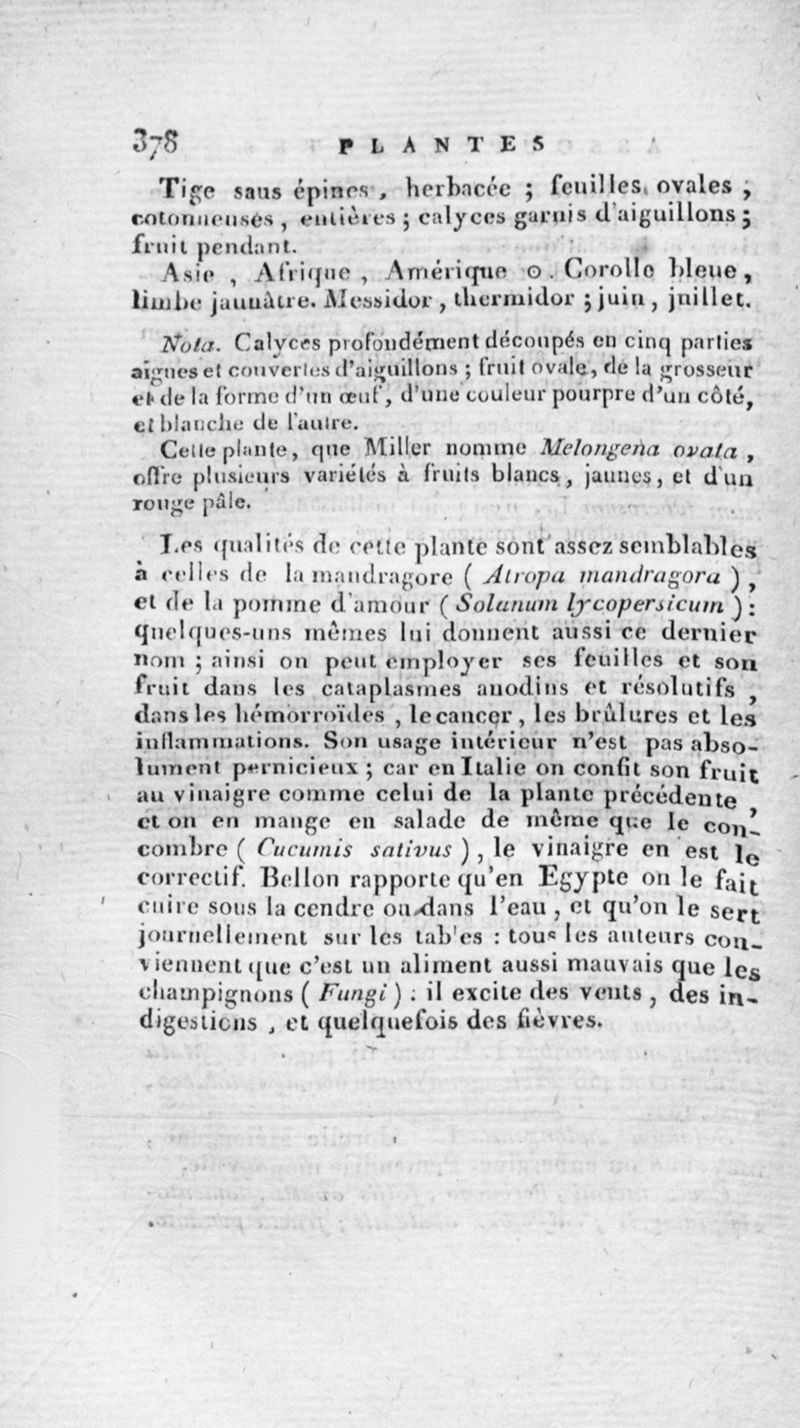 378 PLANTES
Tige sans épines, herbacée ; feuilles ovales ;
cotonneuses, entières ; calyces garnis d'aiguillons ;
fruit pendant.
Asie, Afrique, Amérique ⊙. Corolle bleue,
limbe jaunâtre. Messidor, thermidor ; juin, juillet.
Nota. Calyces profondément découpés en cinq parties
aigues et couvertes d'aiguillons ; fruit ovale, de la grosseur
et de la forme d'un œuf, d'une couleur pourpre d'un côté,
et blanche de l'autre.
Cette plante, que Miller nomme Melongena ovata,
offre plusieurs variétés à fruits blancs, jaunes, et d'un
rouge pâle.
Les qualités de cette plante sont assez semblables
à celles de la mandragore ( Atropa mandragora ),
et de la pomme d'amour ( Solanum lycopersicum ) :
quelques-uns mêmes lui donnent aussi ce dernier
nom ; ainsi on peut employer ses feuilles et son
fruit dans les cataplasmes anodins et résolutifs,
dans les hémorroïdes, le cancer, les brûlures et les
inflammations. Son usage intérieur n'est pas abso-
lument pernicieux ; car en Italie on confit son fruit
au vinaigre comme celui de la plante précédente,
et on en mange en salade de même que le con-
combre ( Cucumis sativus ), le vinaigre en est le
correctif. Bellon rapporte qu'en Egypte on le fait
cuire sous la cendre ou dans l'eau, et qu'on le sert
journellement sur les tables : tous les auteurs con-
viennent que c'est un aliment aussi mauvais que les
champignons ( Fungi ) : il excite des vents, des in-
digestions, et quelquefois des fièvres.